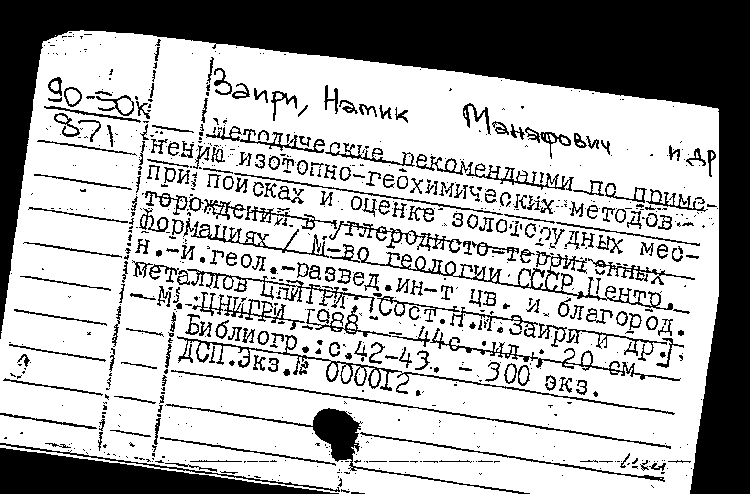 90-50к
871
Заири, Намик Манафович и др
Методические рекомендации по приме-
нению изотопно-геохимических методов
при поисках и оценке золоторудных мес-
торождений в углеродисто-терригенных
формациях / М-во геологии СССР, Центр.
н.-и.геол.-развед.ин-т цв. и благород.
металлов ЦНИГРИ; [Сост.Н.М.Заири и др.].
- М.:ЦНИГРИ, 1988. - 44с.:ил.; 20 см.
Библиогр.:с.42-43. - 300 экз.
ДСП.Экз.№ 000012.